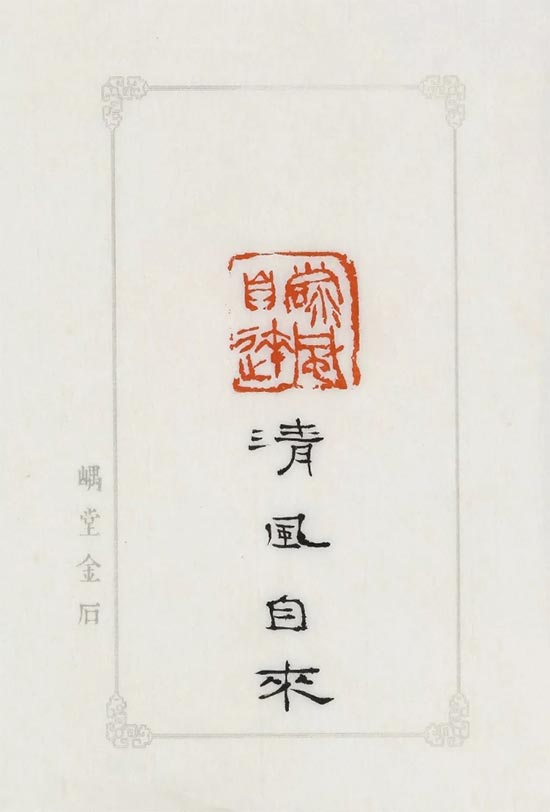 清風
自來
清風自來
嵎堂金石